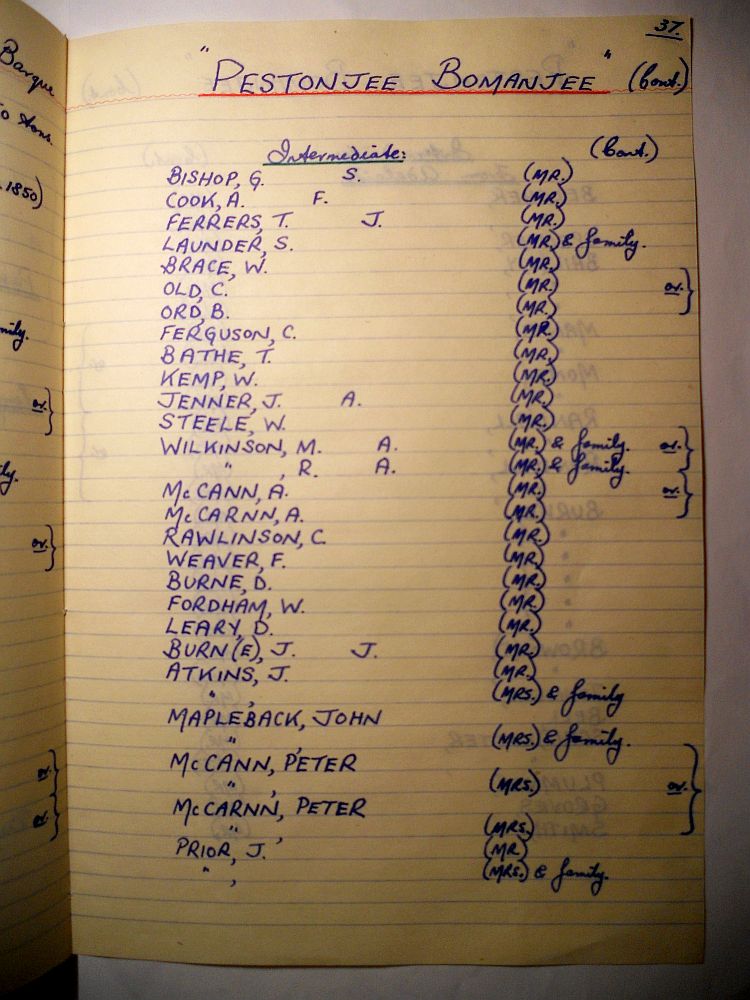 37.
"PESTONJEE BOMANJEE" (Cont.)
Intermediate: (Cont.)
BISHOP, G. S. (MR.)
COOK, A. F. (MR.)
FERRERS, T. J. (MR.)
LAUNDER, S. (MR.) & family.
BRACE, W. (MR.)
OLD, C. (MR.) or. }
ORD, B. (MR.)
FERGUSON, C. (MR.)
BATHE, T. (MR.)
KEMP, W. (MR.)
JENNER, J. A. (MR.)
STEELE, W. (MR.)
WILKINSON, M. A. (MR.) & family. or. }
" , R. A. (MR.) & family.
McCANN, A. (MR.) or. }
McCARNN, A. (MR.)
RAWLINSON, C. (MR.)
WEAVER, F. (MR.)
BURNE, D. (MR.)
FORDHAM, W. (MR.)
LEARY, D. (MR.)
BURN(E), J. J. (MR.)
ATKINS, J. (MR.)
" , (MRS.) & family
MAPLEBACK, JOHN
" , (MRS.) & family.
McCANN, PETER
" , (MRS.) or. }
McCARNN, PETER
" , (MRS.)
PRIOR, J. (MR.)
" , (MRS.) & family.
Barque
tons.
1850)
or. }
or. }
or. }
or. }